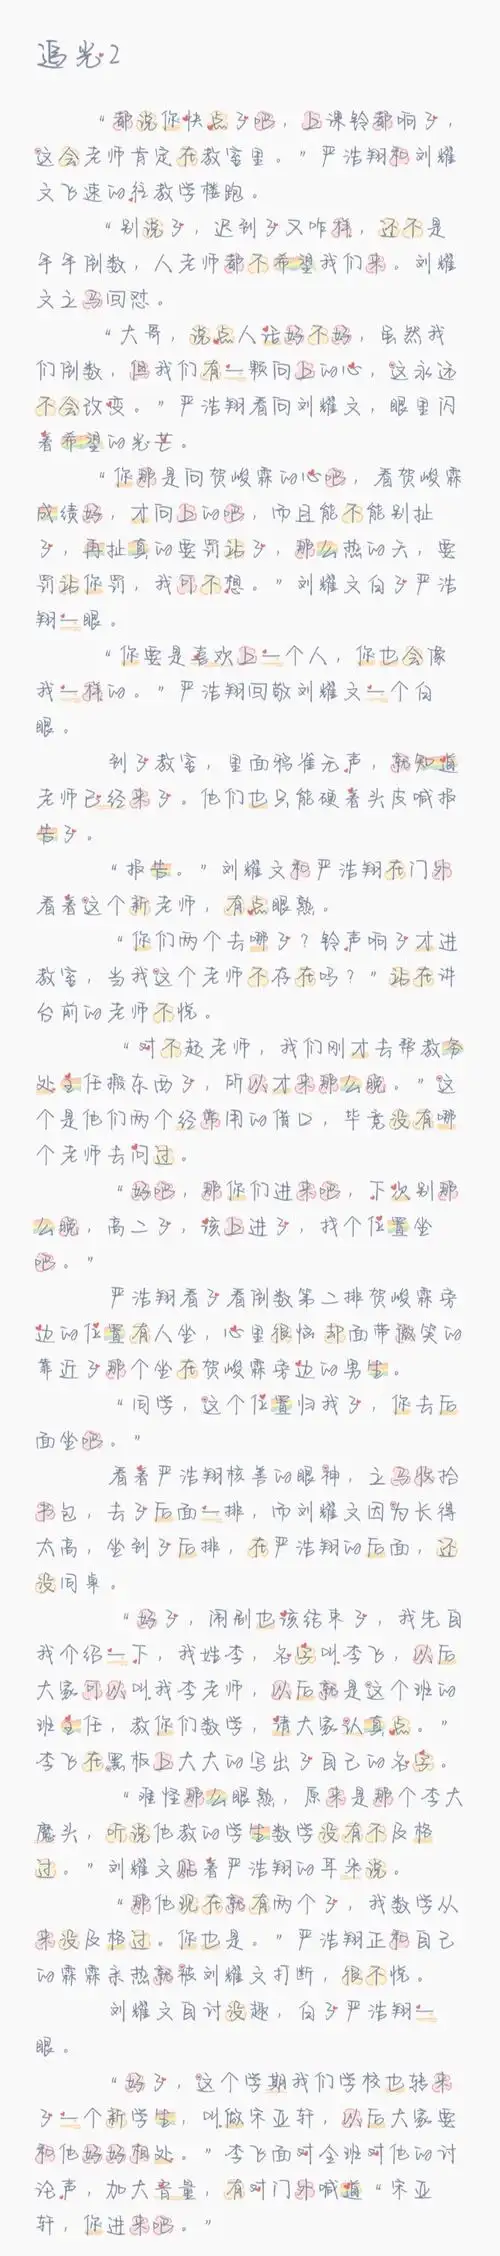 追光2
“都说你快点了吧，上课铃都响了，
这会老师肯定在教室里。”严浩翔和刘耀
文飞速的往教学楼跑。
“别说了，迟到了又咋样，还不是
年年倒数，人老师都不希望我们来。刘耀
文立马回怼。
“大哥，说点人话好不好，虽然我
们倒数，但我们有一颗向上的心，这永远
不会改变。”严浩翔看向刘耀文，眼里闪
着希望的光芒。
“你那是向贺峻霖的心吧，看贺峻霖
成绩好，才向上的吧，而且能不能别扯
了，再扯真的要罚站了，那么热的天，要
罚站你罚，我可不想。”刘耀文白了严浩
翔一眼。
“你要是喜欢上一个人，你也会像
我一样的。”严浩翔回敬刘耀文一个白
眼。
到了教室，里面鸦雀无声，就知道
老师已经来了。他们也只能硬着头皮喊报
告了。
“报告。”刘耀文和严浩翔在门外
看着这个新老师，有点眼熟。
“你们两个去哪了？铃声响了才进
教室，当我这个老师不存在吗？”站在讲
台前的老师不悦。
“对不起老师，我们刚才去帮教务
处主任搬东西了，所以才来那么晚。”这
个是他们两个经常用的借口，毕竟没有哪
个老师去问过。
“好吧，那你们进来吧，下次别那
么晚，高二了，该上进了，找个位置坐
吧。”
严浩翔看了看倒数第二排贺峻霖旁
边的位置有人坐，心里很恼却面带微笑的
靠近了那个坐在贺峻霖旁边的男生。
“同学，这个位置归我了，你去后
面坐吧。”
看着严浩翔核善的眼神，立马收拾
书包，去了后面一排，而刘耀文因为长得
太高，坐到了后排，在严浩翔的后面，还
没同桌。
“好了，闹剧也该结束了，我先自
我介绍一下，我姓李，名字叫李飞，以后
大家可以叫我李老师，以后就是这个班的
班主任，教你们数学，请大家认真点。”
李飞在黑板上大大的写出了自己的名字。
“难怪那么眼熟，原来是那个李大
魔头，听说他教的学生数学没有不及格
过。”刘耀文贴着严浩翔的耳朵说。
“那他现在就有两个了，我数学从
来没及格过。你也是。”严浩翔正和自己
的霖霖亲热就被刘耀文打断，很不悦。
刘耀文自讨没趣，白了严浩翔一
眼。
“好了，这个学期我们学校也转来
了一个新学生，叫做宋亚轩，以后大家要
和他好好相处。”李飞面对全班对他的讨
论声，加大音量，有对门外喊道“宋亚
轩，你进来吧。”